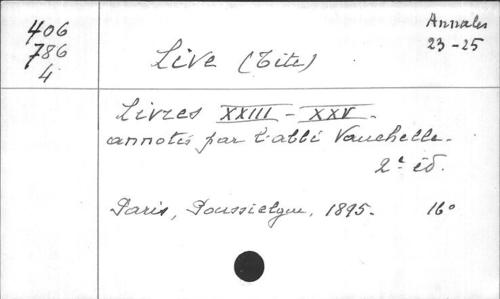 406
786
4
Annales
23-25
Live (Tite)
Livres XXIII - XXV.
annotés par l'abbé Vauchelle.
2e éd.
Paris, Poussielgue, 1895. 16°